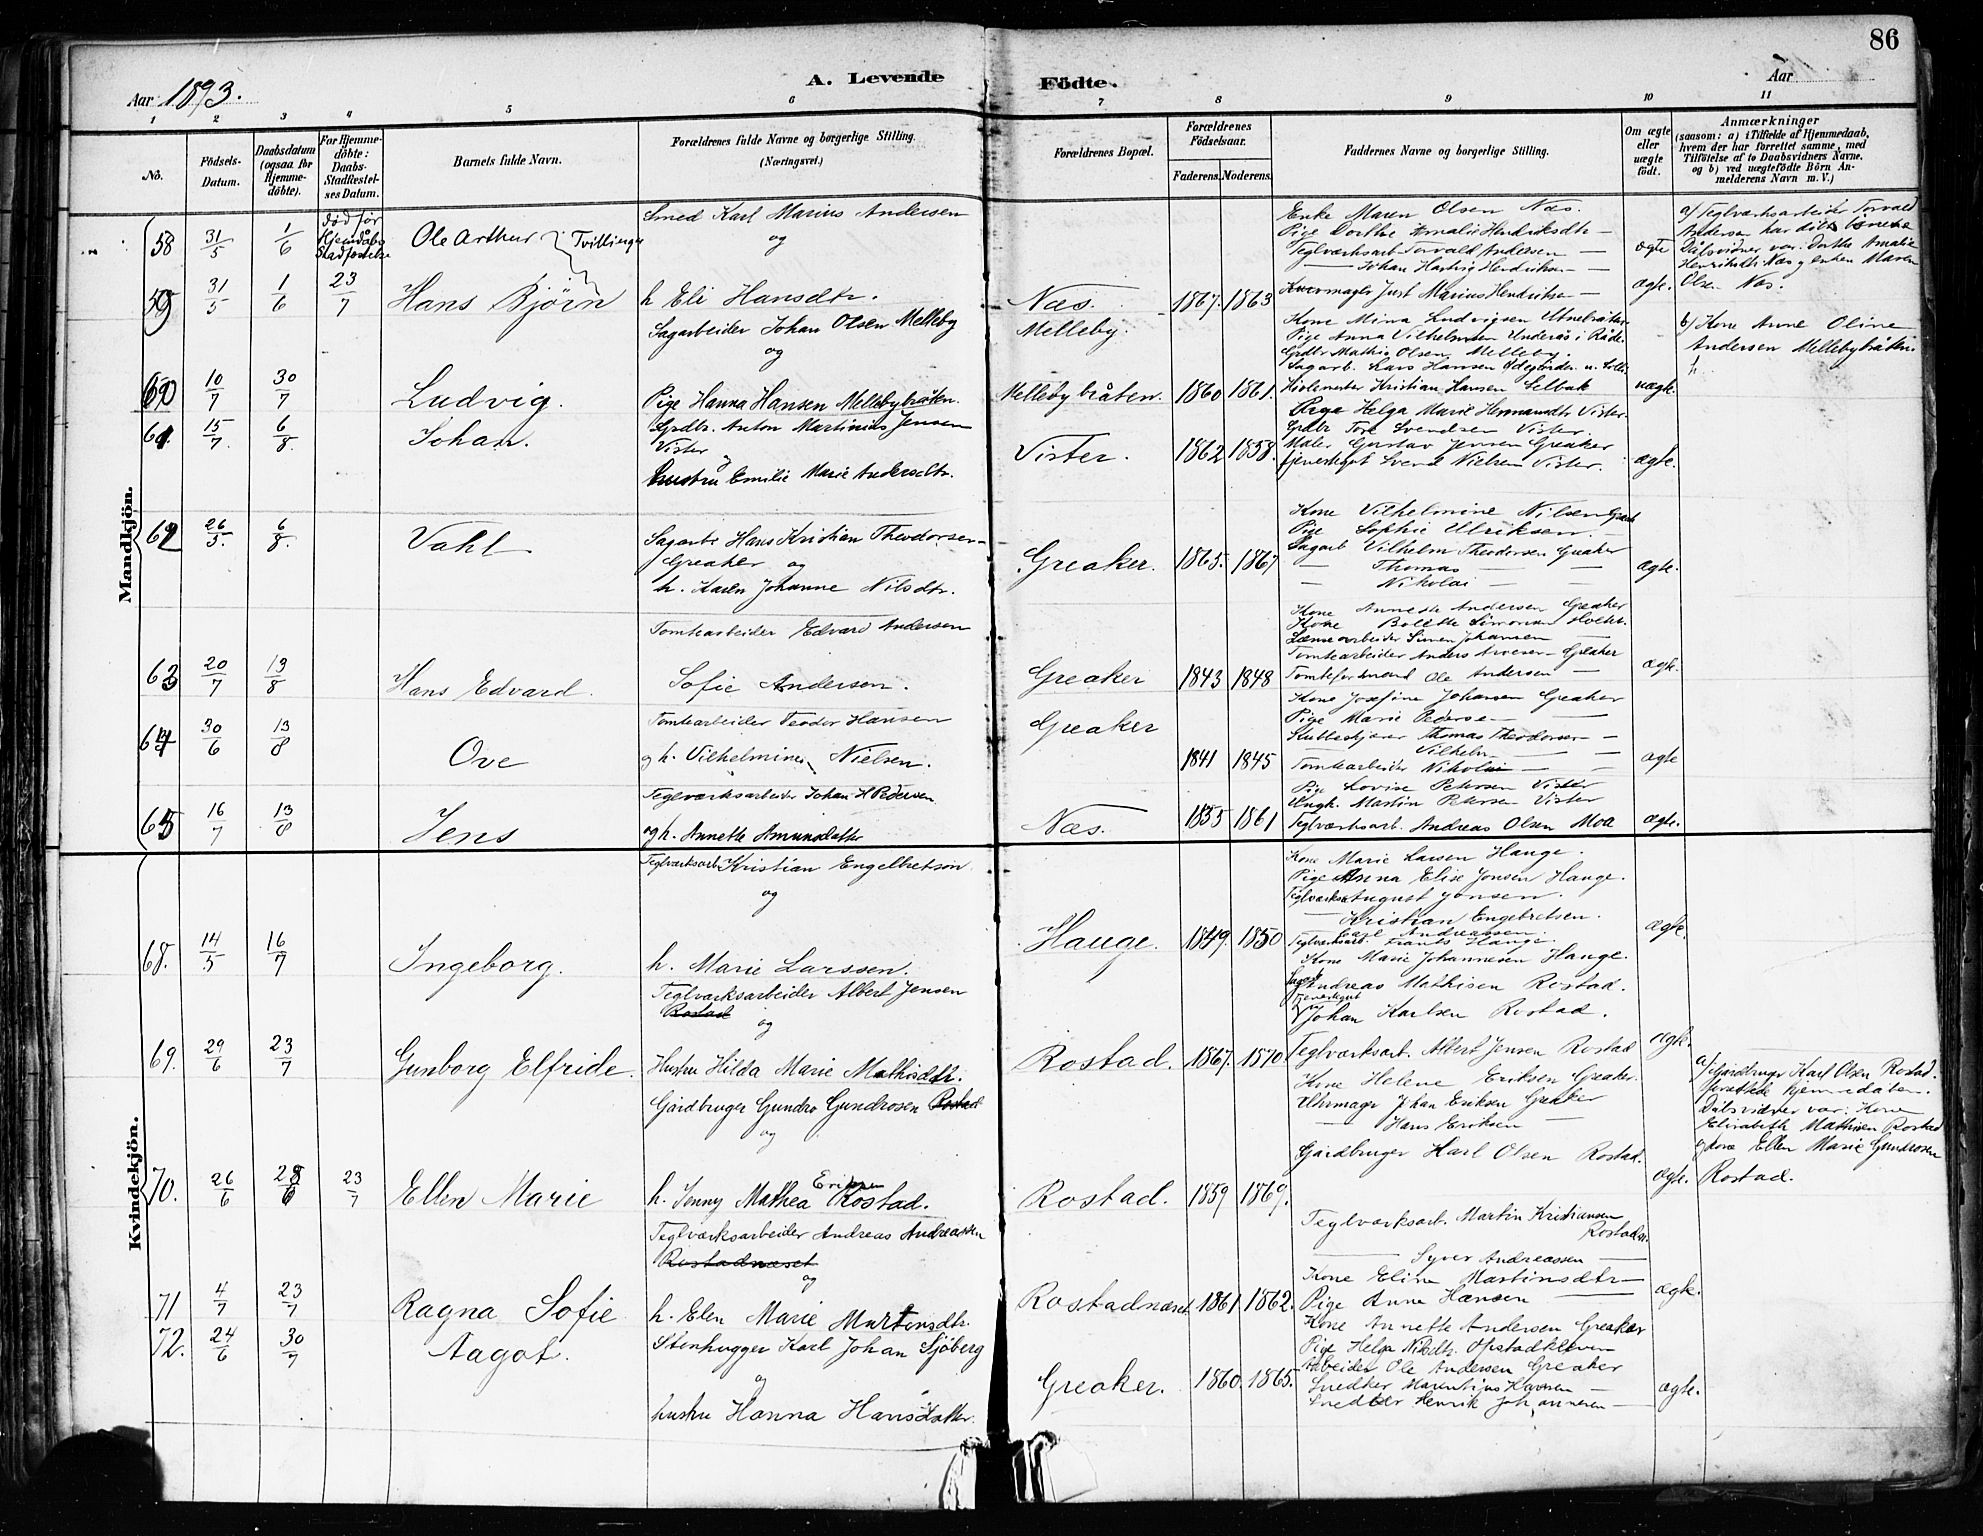 86
Aar 1893.
A. Levende Födte.
Aar
1 2 3 4 5 6 7 8 9 10 11
No.
Födsels-Datum.
Daabsdatum (ogsaa for Hjemme-döbte).
For Hjemme-döbte: Daabs-Stadfæstel-ses Datum.
Barnets fulde Navn.
Forældrenes fulde Navne og borgerlige Stilling. (Næringsvei.)
Forældrenes Bopæl.
Forældrenes Födselsaar.
Faderens. Moderens.
Faddernes Navne og borgerlige Stilling.
Om ægte eller uægte födt.
Anmærkninger
(saasom: a) i Tilfælde af Hjemmedaab, hvem der har forrettet samme, med Tilföielse af to Daabsvidners Navne, og b) ved uægtefödte Börn An-melderens Navn m. V.)
Mandkjön.
58 31/5 1/6 død før Hjemdåbs Stadfæstelse Ole Arthur Tvillinger
Smed Karl Marius Andersen
og
Enke Maren Olsen Næs.
Pige Dorthe Amalie Hendriksdtr —
Teglværksarb Torvald Andersen —
— Johan Hartvig Hendriksen —
ægte
a) Teglværksarbeider Torvald
Andersen har døbt børnene
Dåbsvidner var: Dorthe Amalie
Henriksdtr Næs og enken Maren
Olsen Næs.
59 31/5 1/6 23/7 Hans Bjørn
h. Eli Hansdtr.
Næs. 1867. 1863
Just Marius Hendriksen —
ægte.
Sagarbeider Johan Olsen Melleby
og
Melleby.
Kone Mina Ludvigsen
Pige Anna Vilhelmsen Underås i Råde
Grdbr Mathis Olsen Melleby.
Sagarb. Lars Hansen
b) Kone Anne Oline
Andersen Mellebybråten.
60 10/7 30/7 Ludvig.
Pige Hanna Hansen Mellebybråten.
Mellebybråten. 1860 1861.
Kristian Hansen Selbak
uægte.
61. 15/7 6/8. Johan.
Grdbr. Anton Martinius Jensen
Vister og
hustru Emilie Marie Andersdtr.
Vister. 1862 1858.
Pige Helga Marie Hermansdtr Vister.
Grdbr Tore Svendsen Vister.
Maler Gustav Jensen Greaker
Tjenestegut Svend Nielsen Vister.
ægte.
62 26/5. 6/8. Vahl
Sagarb Hans Kristian Theodorsen
Greaker og
h. Karen Johanne Nilsdtr.
Greaker. 1865. 1867
Kone Vilhelmine Nilsen
Pige Sophie Ulriksen. —
Sagarb Vilhelm Theodorsen Greaker
— Thomas — —
— Nikolai — —
ægte.
63 20/7 13/8 Hans Edvard.
Tomtearbeider Edvard Andersen
Sofie Andersen.
Greaker 1843 1848
Kone Annette Andersen Greaker
Kone Bolette Simonsen
Lænsearbeider Simen Johansen —
Tomtearbeider Anders Greaker
Tomteformand Ole Andersen —
ægte.
64 30/6 13/8 Ove
Tomtearbeider Teodor Hansen
og h. Vilhelmine Nielsen.
Greaker
1841 1845
Kone Josefine Johansen Greaker
Pige Marie Pedersen —
Thomas Theodorsen —
— Vilhelm — —
Tomtearbeider Nikolai — —
ægte
65 16/7 13/8 Jens
Teglværksarbeider Johan H Pedersen
og h. Annette Amundsdatter
Næs. 1855 1861
Pige Lovise Petersen Vister
Ungk. Martin Petersen Vister
Teglværksarb. Andreas Olsen Moe
ægte.
Kvindekjön.
68. 14/5 16/7 Ingeborg.
Teglværksarb Kristian Engelbretsøn
og
h. Marie Larssen.
Hauge. 1849. 1850
Kone Marie Larsen Hauge.
Pige Anna Elise Jonsen Hauge.
Teglværksa August Jonsen.
— Kristian Engebretsen.
— Carl Andreassen.
Teglværksarb. Frants Hauge.
ægte.
69. 29/6 23/7 Gunborg Elfride.
Teglværksarbeider Albert Jensen
Rostad
og
Hustru Hilda Marie Mathisdtr.
Rostad. 1867. 1870.
Kone Marie Johannesen Hauge.
Andreas Mathisen Rostad.
Johan Karlsen Rostad.
Teglværksarb. Albert Jensen Rostad
ægte.
70. 26/6 28/6 23/7 Ellen Marie
Gårdbruger Gundro Gundrosen Rostad
og
h. Jenny Mathea Eriksen Rostad.
Rostad. 1859 1869.
Kone Helene Eriksen Greaker.
Uhrmager Johan Eriksen Greaker
— Hans Eriksen —
Gårdbruger Karl Olsen Rostad.
ægte.
a) Gårdbruger Karl Olsen Rostad.
forrettede hjemmedåben.
Dåbsvidner var: Kone
Elisabeth Mathisen Rostad
og kone Ellen Marie Gundrosen
Rostad.
71 4/7 23/7 Ragna Sofie
Teglværksarbeider Andreas Andreassen
Rostadnæset
og
h. Elen Marie Martinsdtr.
Rostadnæset 1861 1862.
Teglværksarb. Martin Kristiansen
Rostadn.
— Syver Andreassen —
Kone Eline Martinsdtr —
Pige Anne Hansen —
ægte.
72. 24/6 30/7 Aagot.
Stenhugger Karl Johan Sjöberg
og
hustru Hanna Hansdatter.
Greaker. 1860. 1865.
Kone Annette Andersen Greaker
Pige Helga Nilsdtr. Opstadkleven
Arbeider Ole Andersen Greaker
Snedker Hansen —
Snedker Henrik Johannesen —
ægte.